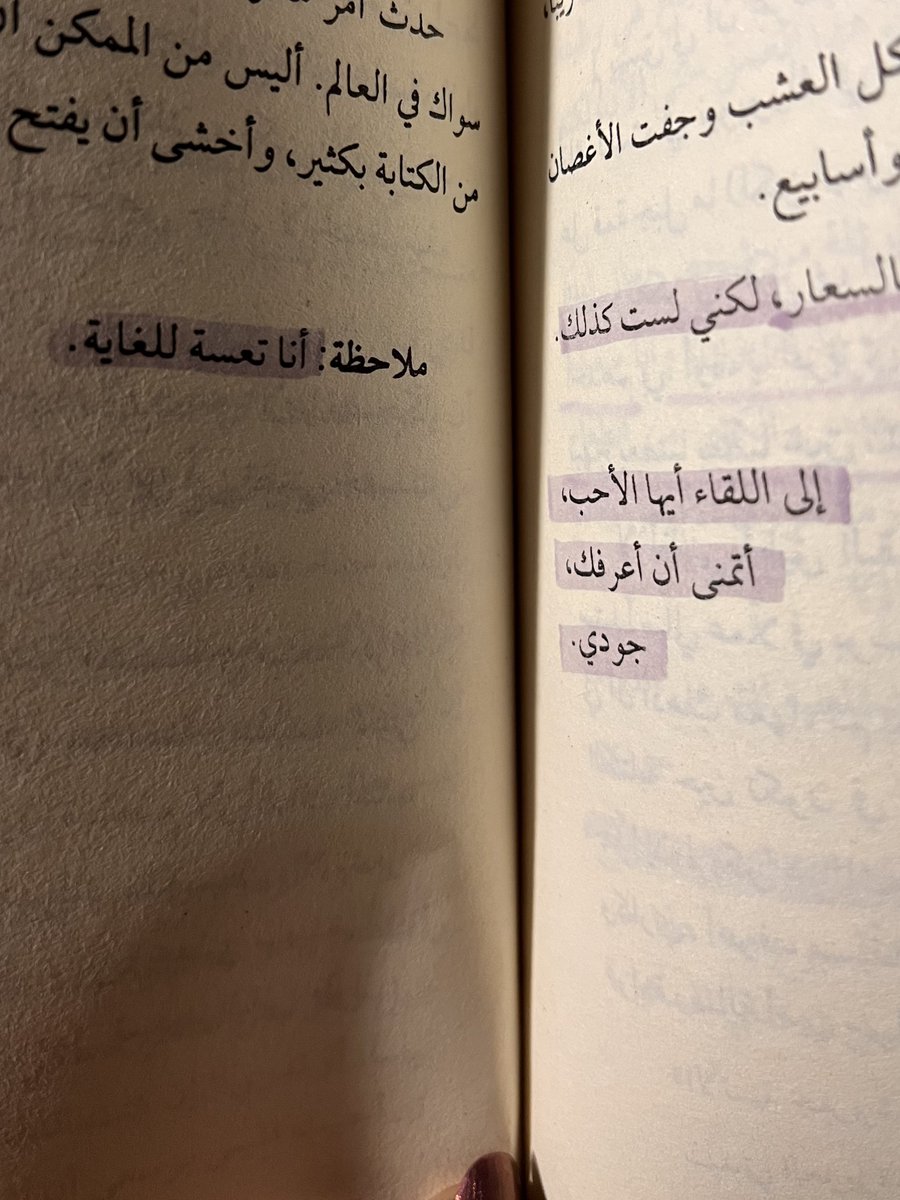 كل العشب وجفت الأغصان
وأسابيع.
بالسعار، لكني لست كذلك.
إلى اللقاء أيها الأحب،
أتمنى أن أعرفك،
جودي.
حدث أمر
سواك في العالم. أليس من الممكن
من الكتابة بكثير، وأخشى أن يفتح
ملاحظة: أنا تعسة للغاية.